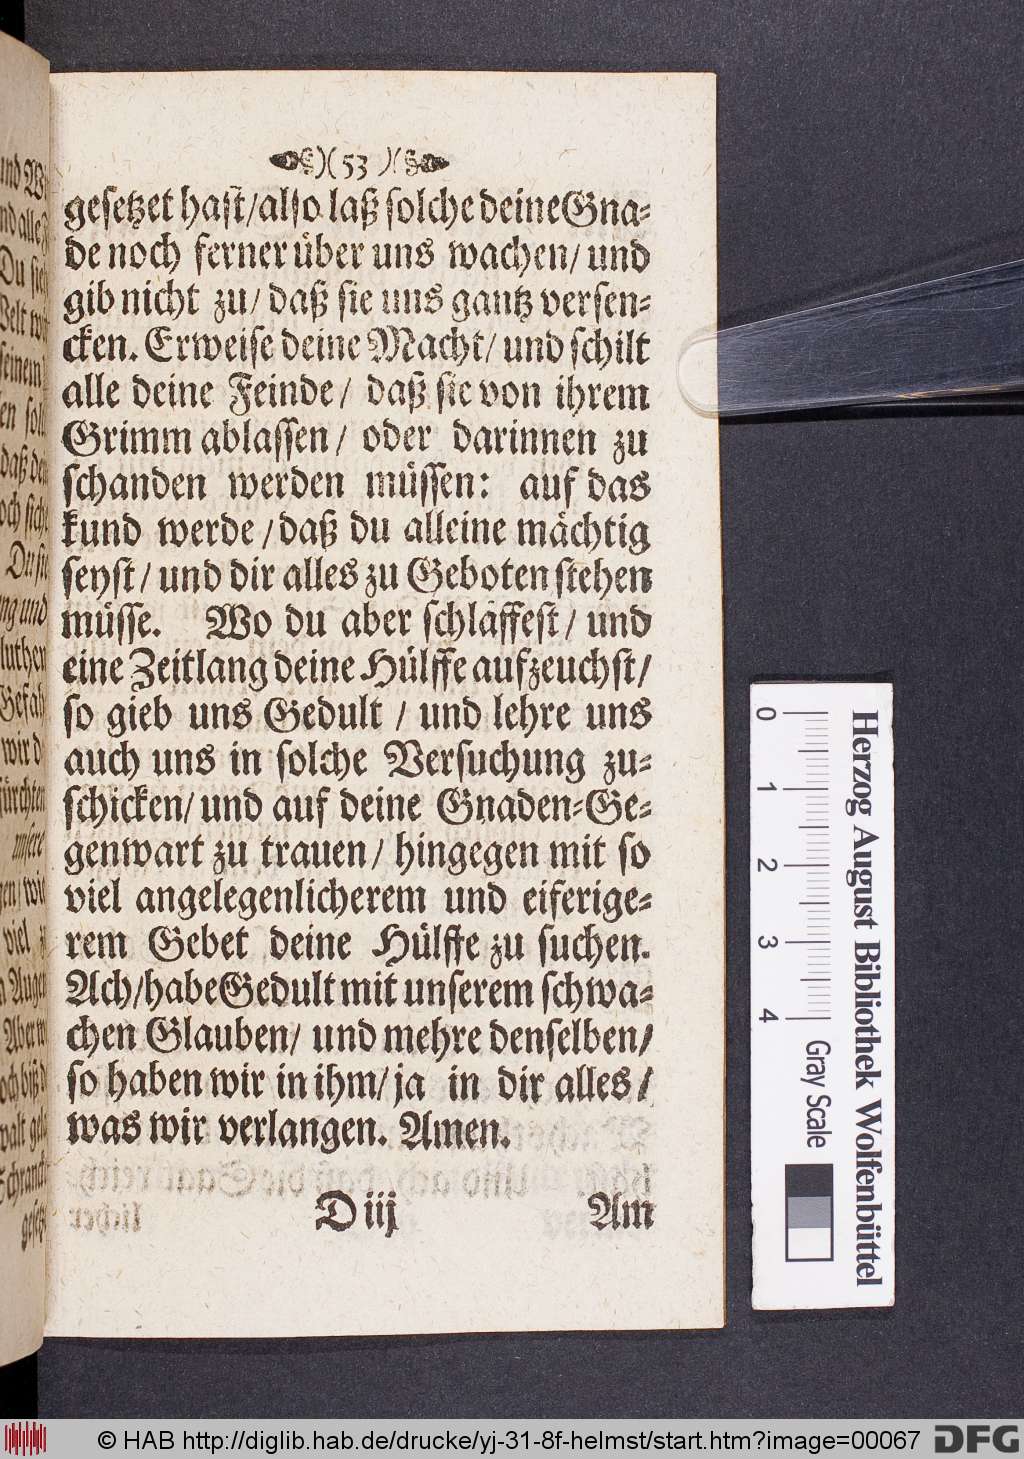 )( 53 )(
gesetzet hast/also laß solche deine Gna-
de noch ferner über uns wachen/ und
gib nicht zu/ daß sie uns gantz versen-
cken. Erweise deine Macht/ und schilt
alle deine Feinde/ daß sie von ihrem
Grimm ablassen/ oder darinnen zu
schanden werden müssen: auf das
kund werde/daß du alleine mächtig
seyst/ und dir alles zu Geboten stehen
müsse. Wo du aber schläffest/ und
eine Zeitlang deine Hülffe aufzeuchst/
so gieb uns Gedult / und lehre uns
auch uns in solche Versuchung zu-
schicken/ und auf deine Gnaden-Ge-
genwart zu trauen/ hingegen mit so
viel angelegenlicherem und eiferige-
rem Gebet deine Hülffe zu suchen.
Ach/habe Gedult mit unserem schwa-
chen Glauben/ und mehre denselben/
so haben wir in ihm/ja in dir alles/
was wir verlangen. Amen.
D iij Am
0 1 2 3 4
Gray Scale
Herzog August Bibliothek Wolfenbüttel
© HAB http://diglib.hab.de/drucke/yj-31-8f-helmst/start.htm?image=00067
DFG